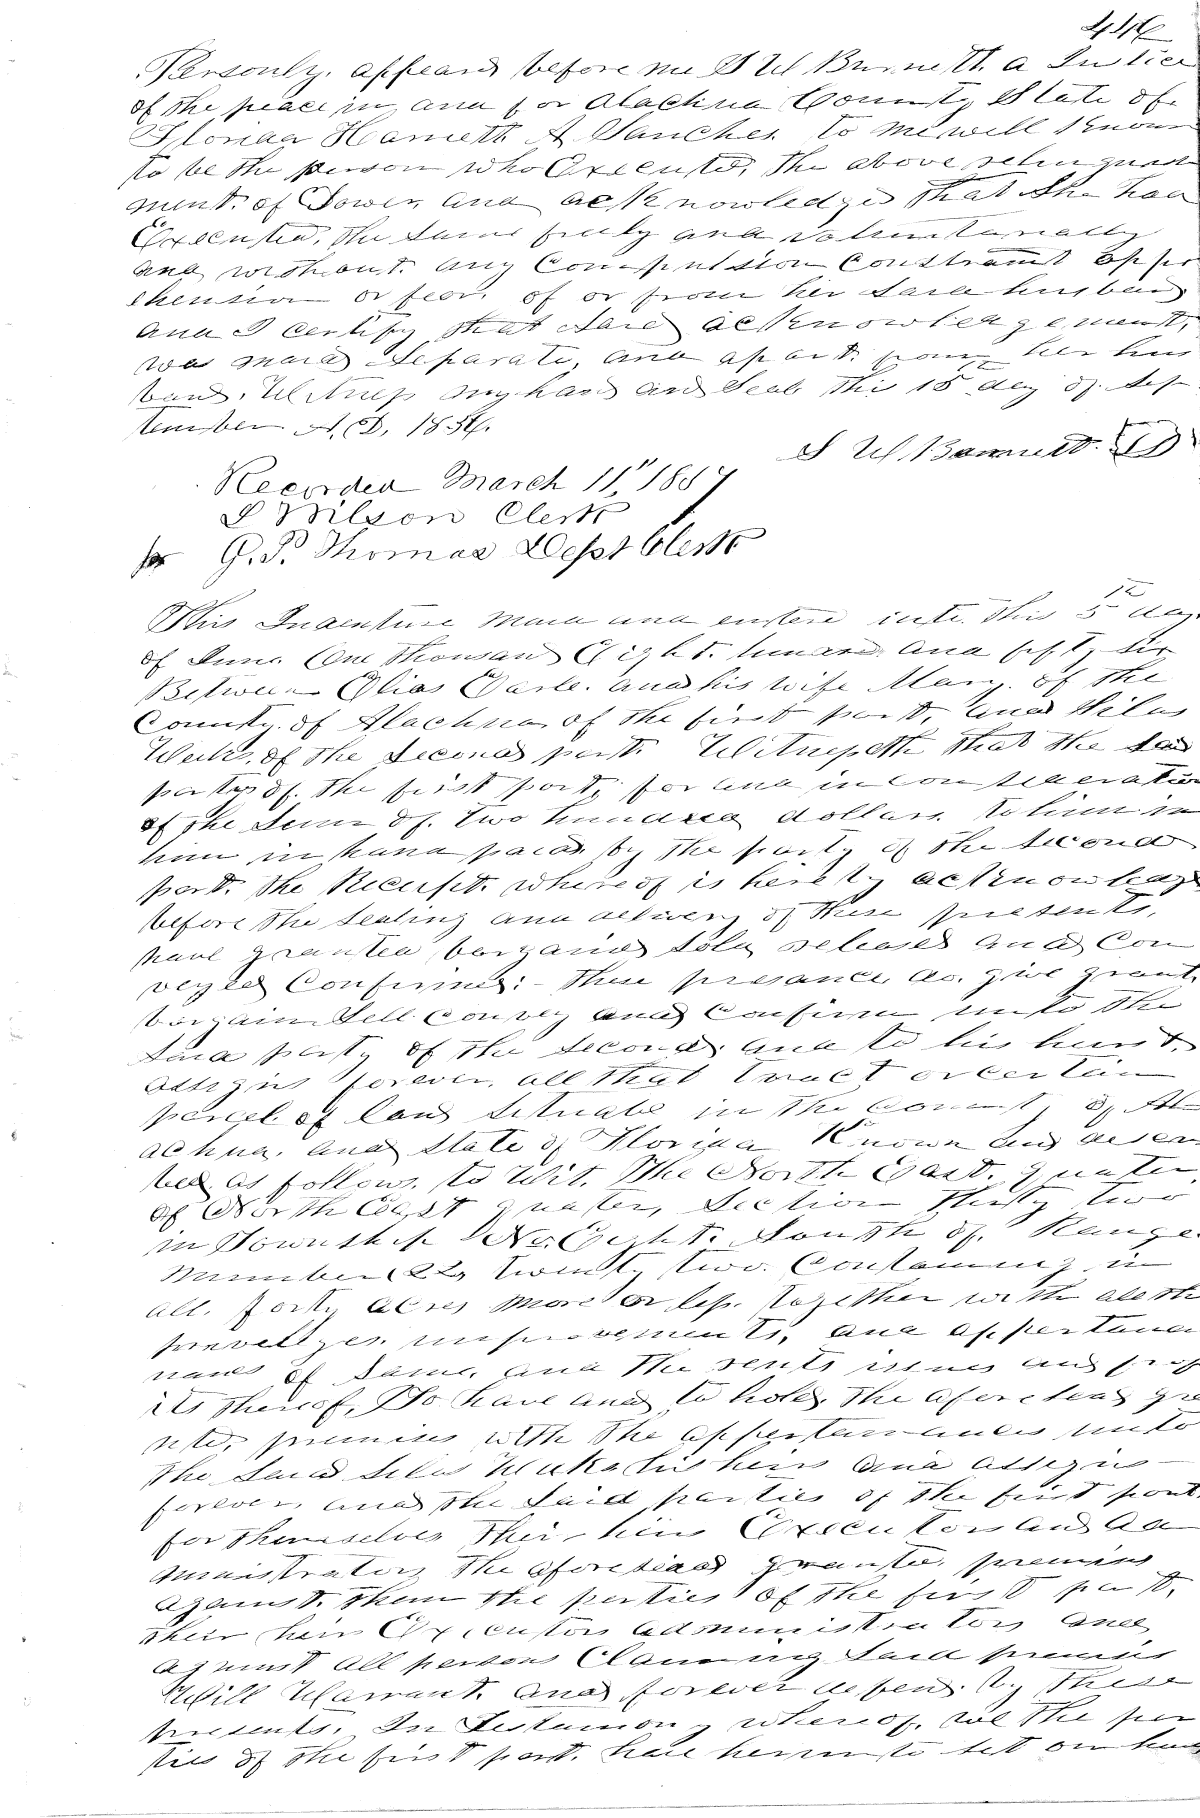 446
Personly, appeard before me S W Burnett. a Justice
of the peace in, and for Alachua County State of
Florida Harriett A Sanchez to me well Known
to be the person who Executed, the above relinquish
ment. of Dower, and acknowledged that She had
Executed, the Same freely and voluntarially
and without. any Compulsion Constraint appre
hension or fear, of or from her Said husband
and I certify that Said acknowledgement,
was maid Separate, and apart. from her hus
band. Witness my hand and Seal this 15th day of Sep
tember A. D. 1856.
S W Burnett.
Recorded March 11, 1857
Wilson Clerk
for G. P. Thomas Dept Clerk
This Indenture Maid and entered into this 5th day
of June. One Thousand Eight. hundred and fifty six
Between Elias Earle. and his wife Mary. of the
County, of Alachua, of the first part, and Silas
Weeks, of the Second part. Witnesseth that the Said
partys of. the first part, for and in consideration
of the Sum of. two hundred dollars. to him in
him in hand paid, by the party of the second
part. the Receipt. whereof is hereby acknowledge
before the Sealing and delivery of these presents.
have granted bargained Sold, released and Con
veyed Confirmed:- These presance do. give grant.
bargain Sell Convey and Confirm unto the
Said party, of the Second, and to his heirs &
assigns forever, all that tract or certain
parcel of land Situate in the County of Al
achua, and State of Florida Known and descri
bed, as follows, to Wit. The North East. quater
of North East quater, Section Thirty two
in Township No. Eight. South of. Range
Number 22, twenty two. Containing in
all. forty acres more or less. together with all the
priveliges. improvements, and appertanan
nances of Same. and the rents issues and prof
its thereof, To have and to hold, the aforesead gra
nted, premises with the appertanances unto
the Said Silas Weeks his heirs and assigns
forever, and the Said parties of the first part.
for themselves their heirs Executors and Ad
ministrators the aforesead granted premises
against. them the parties of the first part,
their heirs Executors administrators and
against all persons Claiming Said premises
Will Warrant. and forever defend. by these
presents. In Testamony whereof. we the par
ties of the first part. have hereunto set our hands